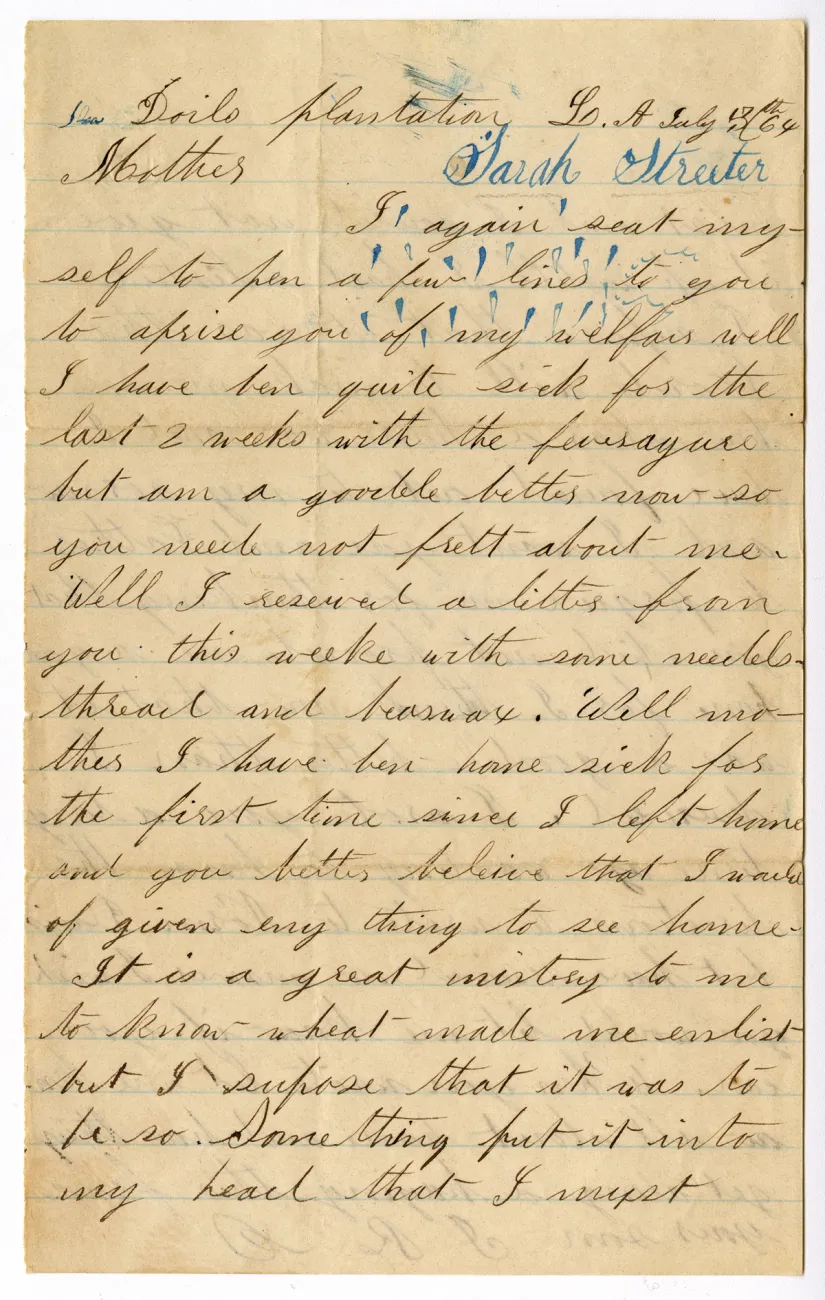 Doils plantation L. A July 17th/64
Mother Sarah Streeter
I again seat my-
self to pen a few lines to you
to aprise you of my welfair well
I have ben quite sick for the
last 2 weeks with the feveragure
but am a goodele better now so
you neede not frett about me.
Well I reseived a litter from
you this weeke with some needels
thread and beaswax. Well mo-
ther I have ben home sick for
the first time since I left home
and you better beleive that I would
of given eny thing to see home.
It is a great mistery to me
to know wheat made me enlist
but I supose that it was to
be so. Something put it into
my head that I must